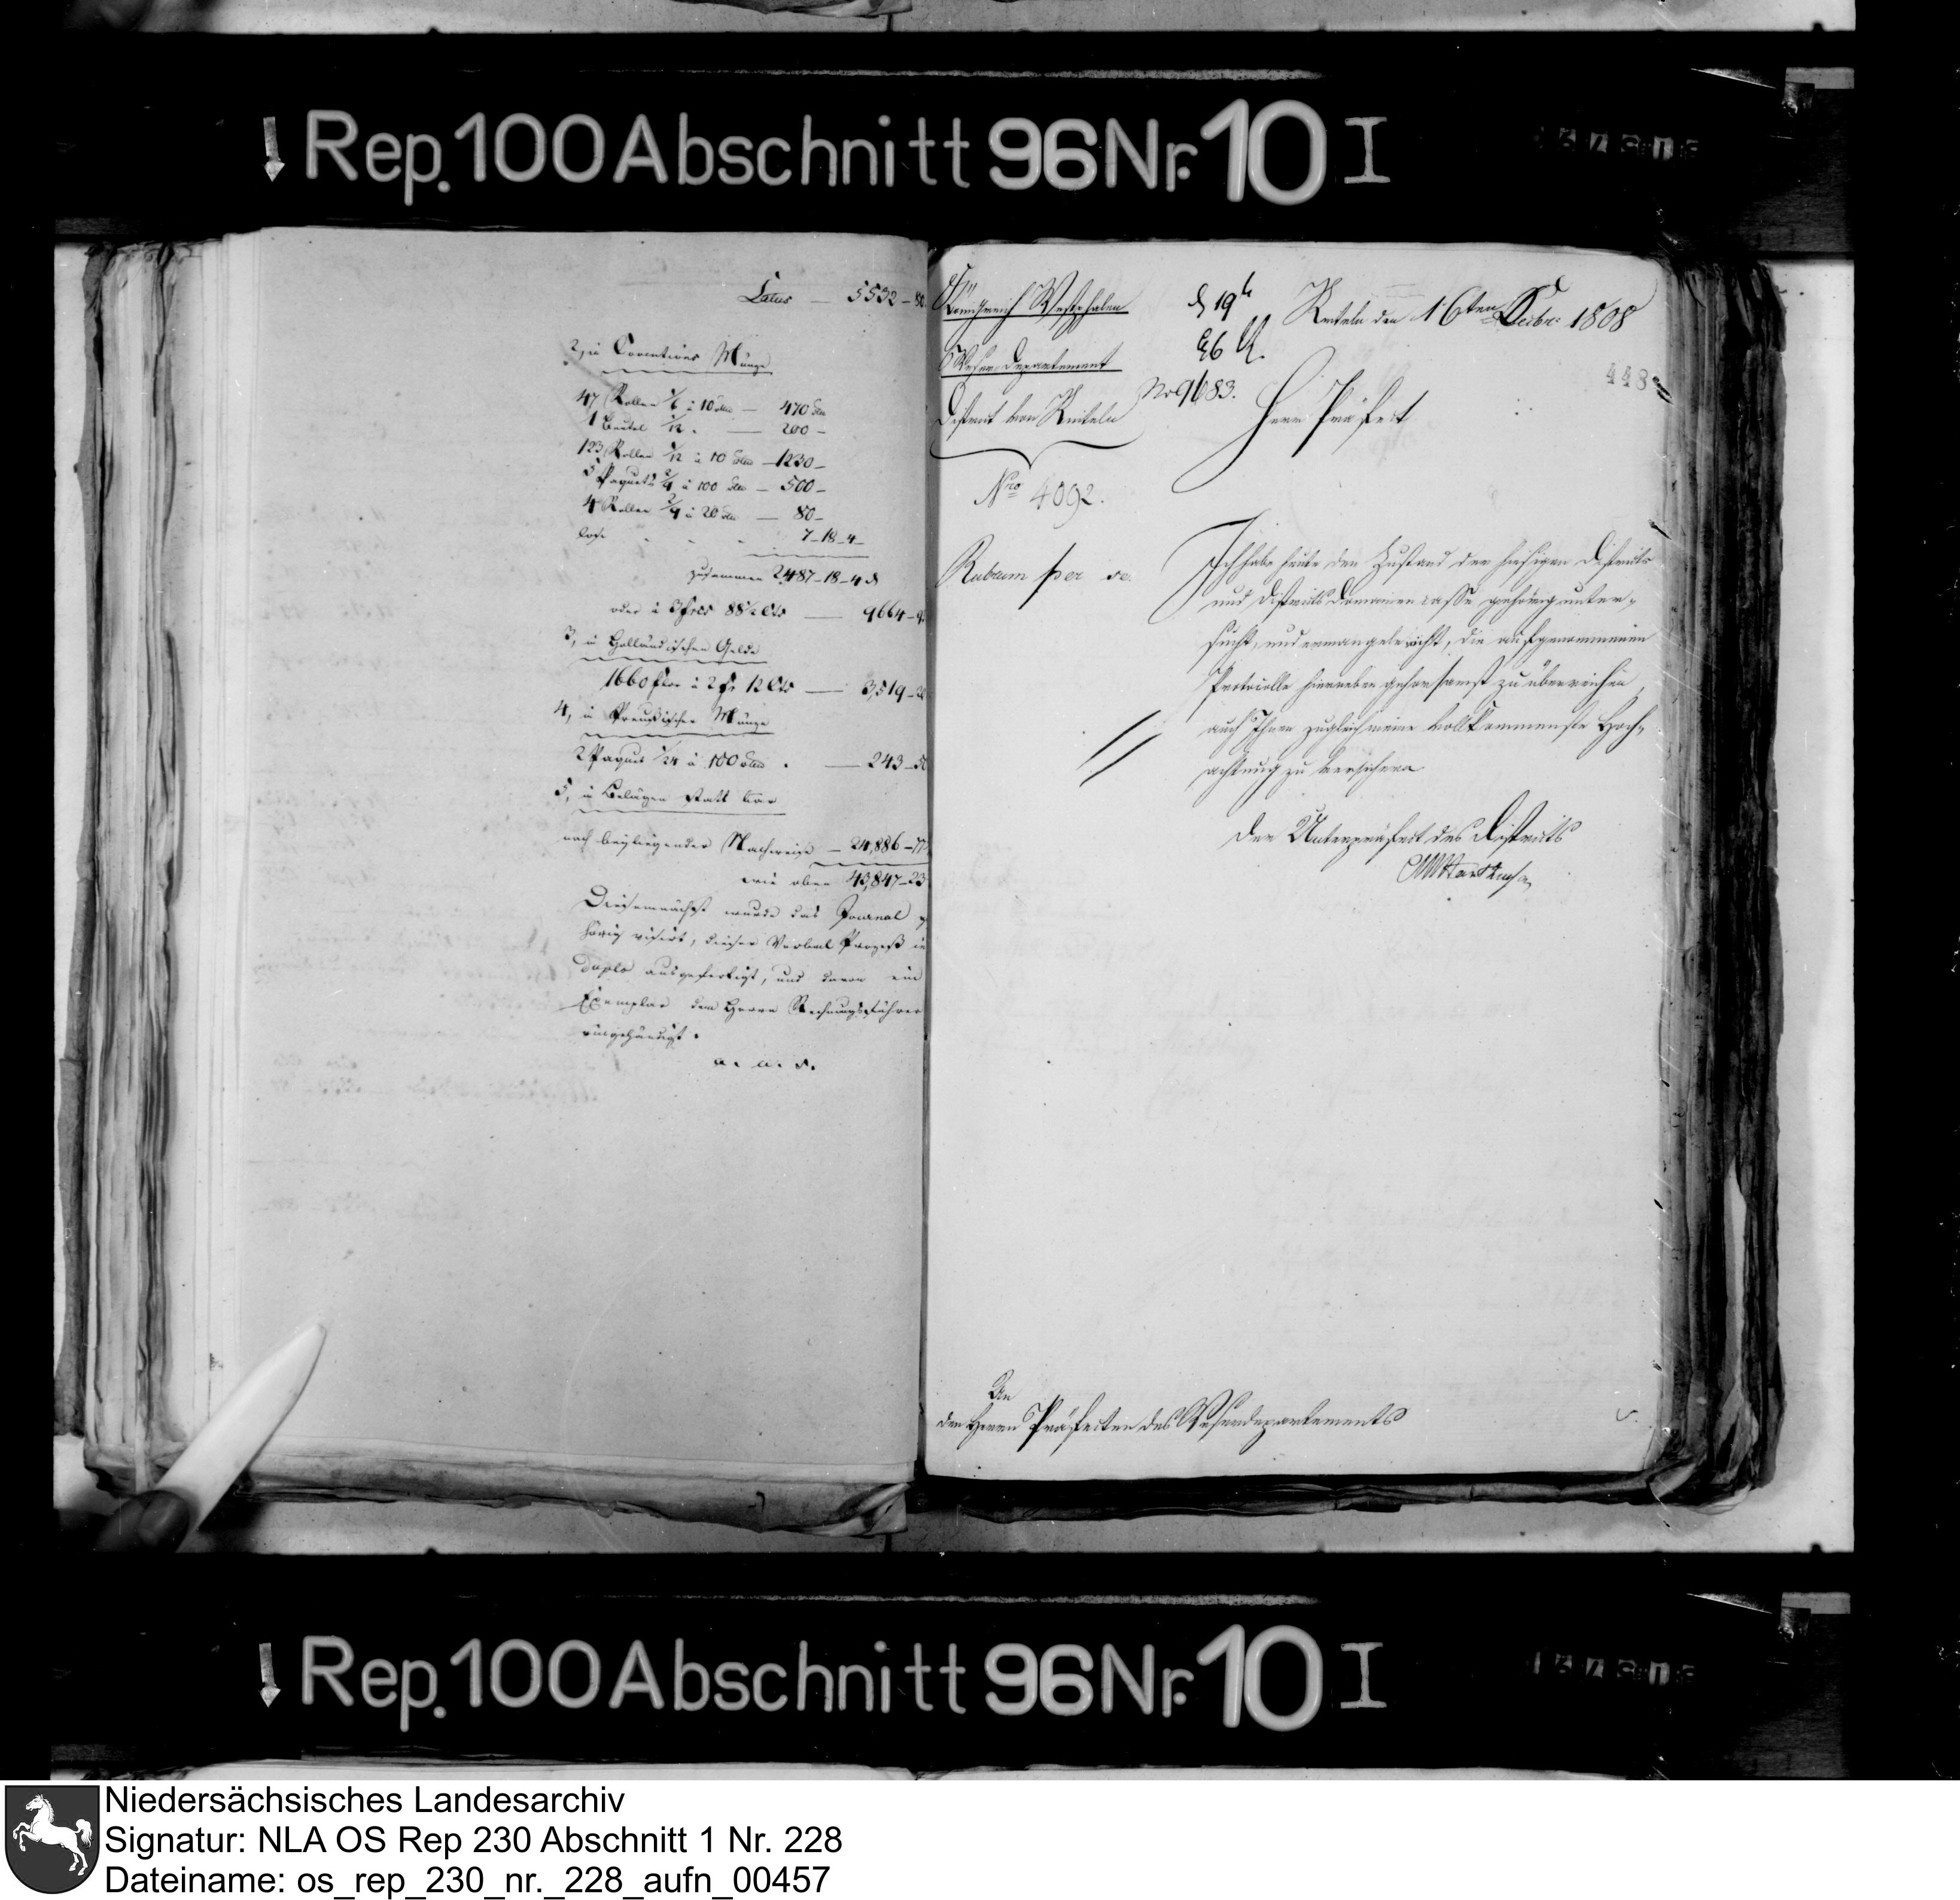 Rep. 100 Abschnitt 96 Nr. 10 I
Latus — 5532 – 80
2, in Conventions Münze
47 Rollen 1/6 à 10 — 470
1 Beutel 1/12 . — 200 –
123 Rollen 1/12 à 10 — 1230 –
5 Paquets 2/4 à 100 — 500 –
4 Rollen 2/4 à 20 — 80 –
lose 7 – 18 – 4 –
zusammen 2487 – 18 – 4
oder à 3 frcs 88 1/2 Cts — 9664
3, in Holländischen Gelde
1660 flor à 2 fr 12 Cts — 3,519
4, in Preußischer Münze
2 Paquet 1/24 à 100 — 243 – 50
5, in Belägen statt baar
nach beyliegender Nachweise — 24,886 – 77
wie oben 43,847 – 23
Diesemnächst wurde das Journal
hörig visirt, dieser Verbal Prozeß in
duplo ausgefertigt, und davon ein
Exemplar dem Herrn Rechnungsführer
eingehändigt.
a. u. s.
Königreich Westphalen
Weser Departement
District von Rinteln
Nro 4092.
Rubrum per se.
19
26
No 9683.
Rinteln den 16ten Decbr: 1808
448
Herr Präfect
Ich habe heute den Zustand der hiesigen Districts
und Districts Domainen casse gehörig unter-
sucht, und ermangele nicht, die aufgenommenen
Protocolle hierneben gehorsamst zu überreichen,
auch Ihnen zugleich meine vollkommenste Hoch-
achtung zu versichern
Der Unterpräfect des Districts
An
den Herrn Präfecten des Weserdepartements
Rep. 100 Abschnitt 96 Nr. 10 I
Niedersächsisches Landesarchiv
Signatur: NLA OS Rep 230 Abschnitt 1 Nr. 228
Dateiname: os_rep_230_nr._228_aufn_00457